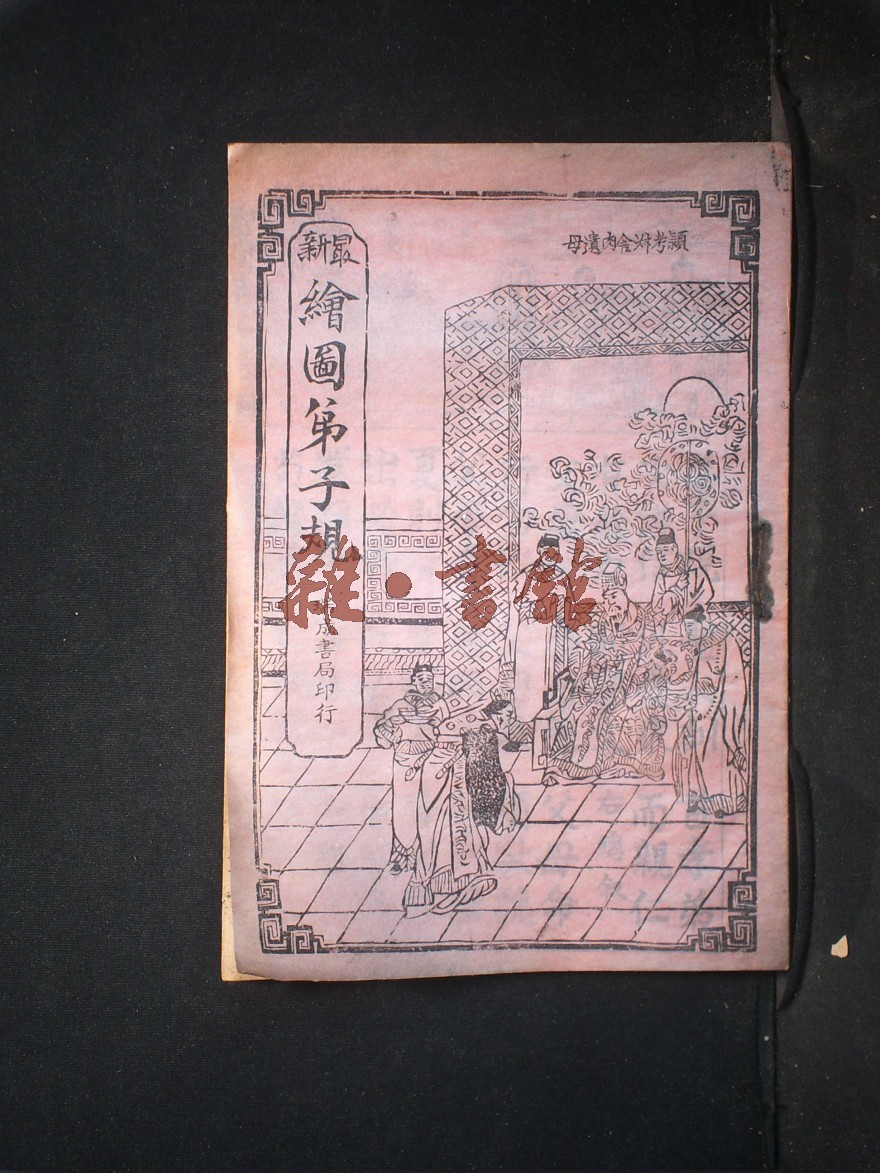 潁考叔舍肉遺母
最新
繪圖弟子規
成書局印行
雜·書館